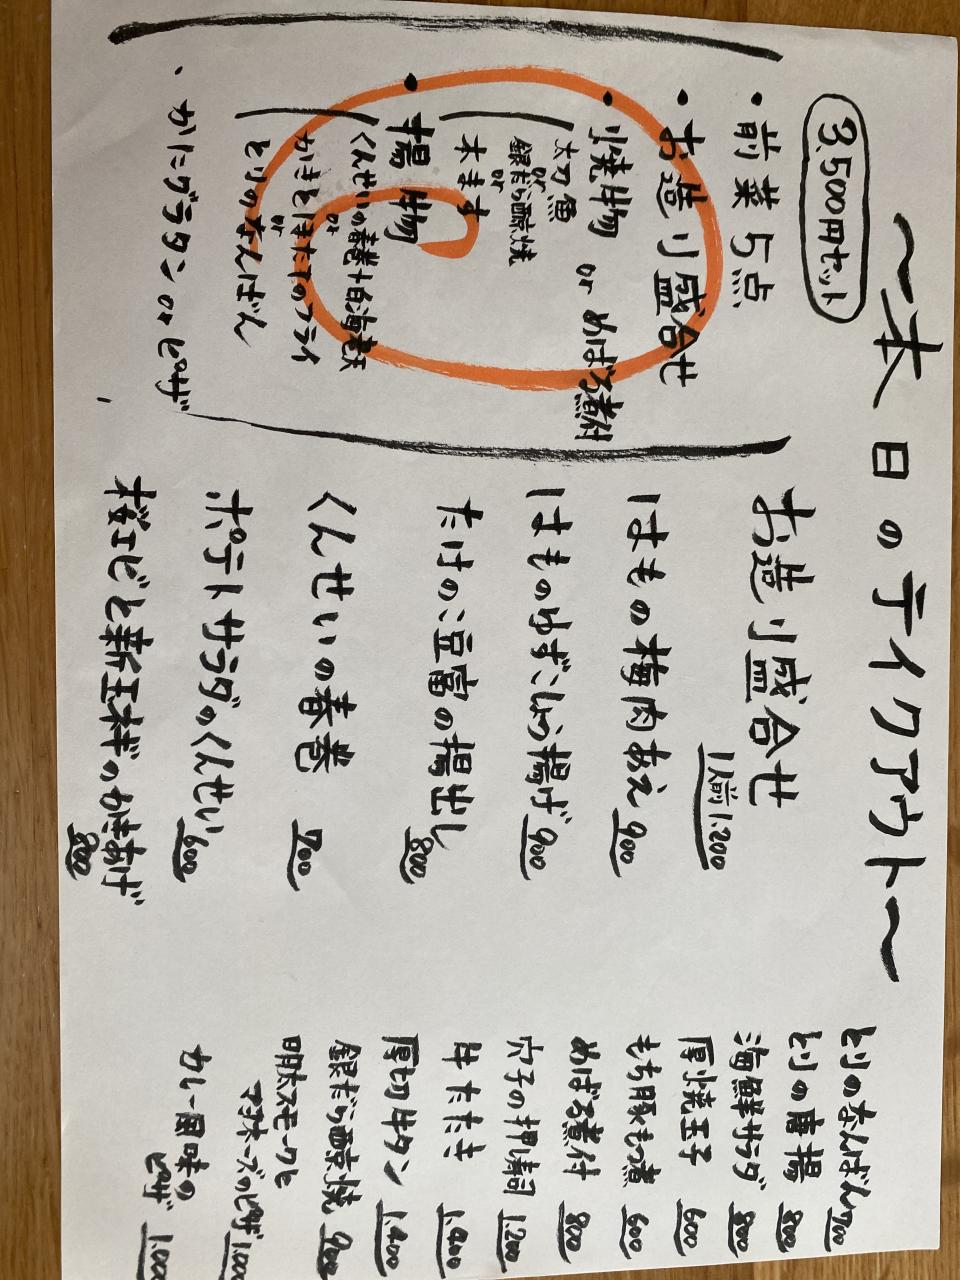 ～本日のテイクアウト～
3,500円セット
・前菜5点
・お造り盛合せ
・焼物 or めばる煮付
太刀魚
or
銀だら西京焼
or
本ます
・揚物
くんせいの春巻+白海老天
or
かきとほたてのフライ
or
とりのなんばん
・かにグラタン or ピザ
お造り盛合せ
1人前1.200
はもの梅肉あえ 900
はものゆずこしょう揚げ 900
たけのこ豆富の揚出し 800
くんせいの春巻 700
ポテトサラダのくんせい 600
桜エビと新玉ネギのかきあげ 800
とりのなんばん 700
とりの唐揚 800
海鮮サラダ 800
厚焼玉子 600
もち豚もつ煮 600
めばる煮付 800
穴子の押し寿司 1.200
牛たたき 1.400
厚切牛タン 1.400
銀だら西京焼 900
明太スモークと
マヨネーズのピザ 1.000
カレー風味の
ピザ 1.000